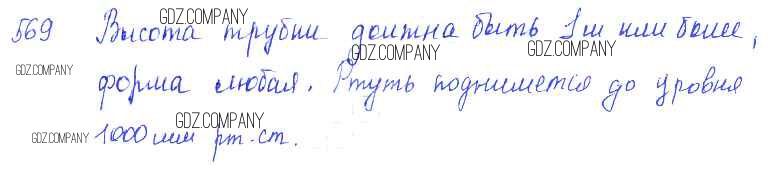 GDZ.COMPANY
569 Высота трубки должна быть 1 м или более,
GDZ.COMPANY GDZ.COMPANY
GDZ.COMPANY форма любая. Ртуть поднимется до уровня
GDZ.COMPANY
GDZ.COMPANY 1000 мм рт. ст.